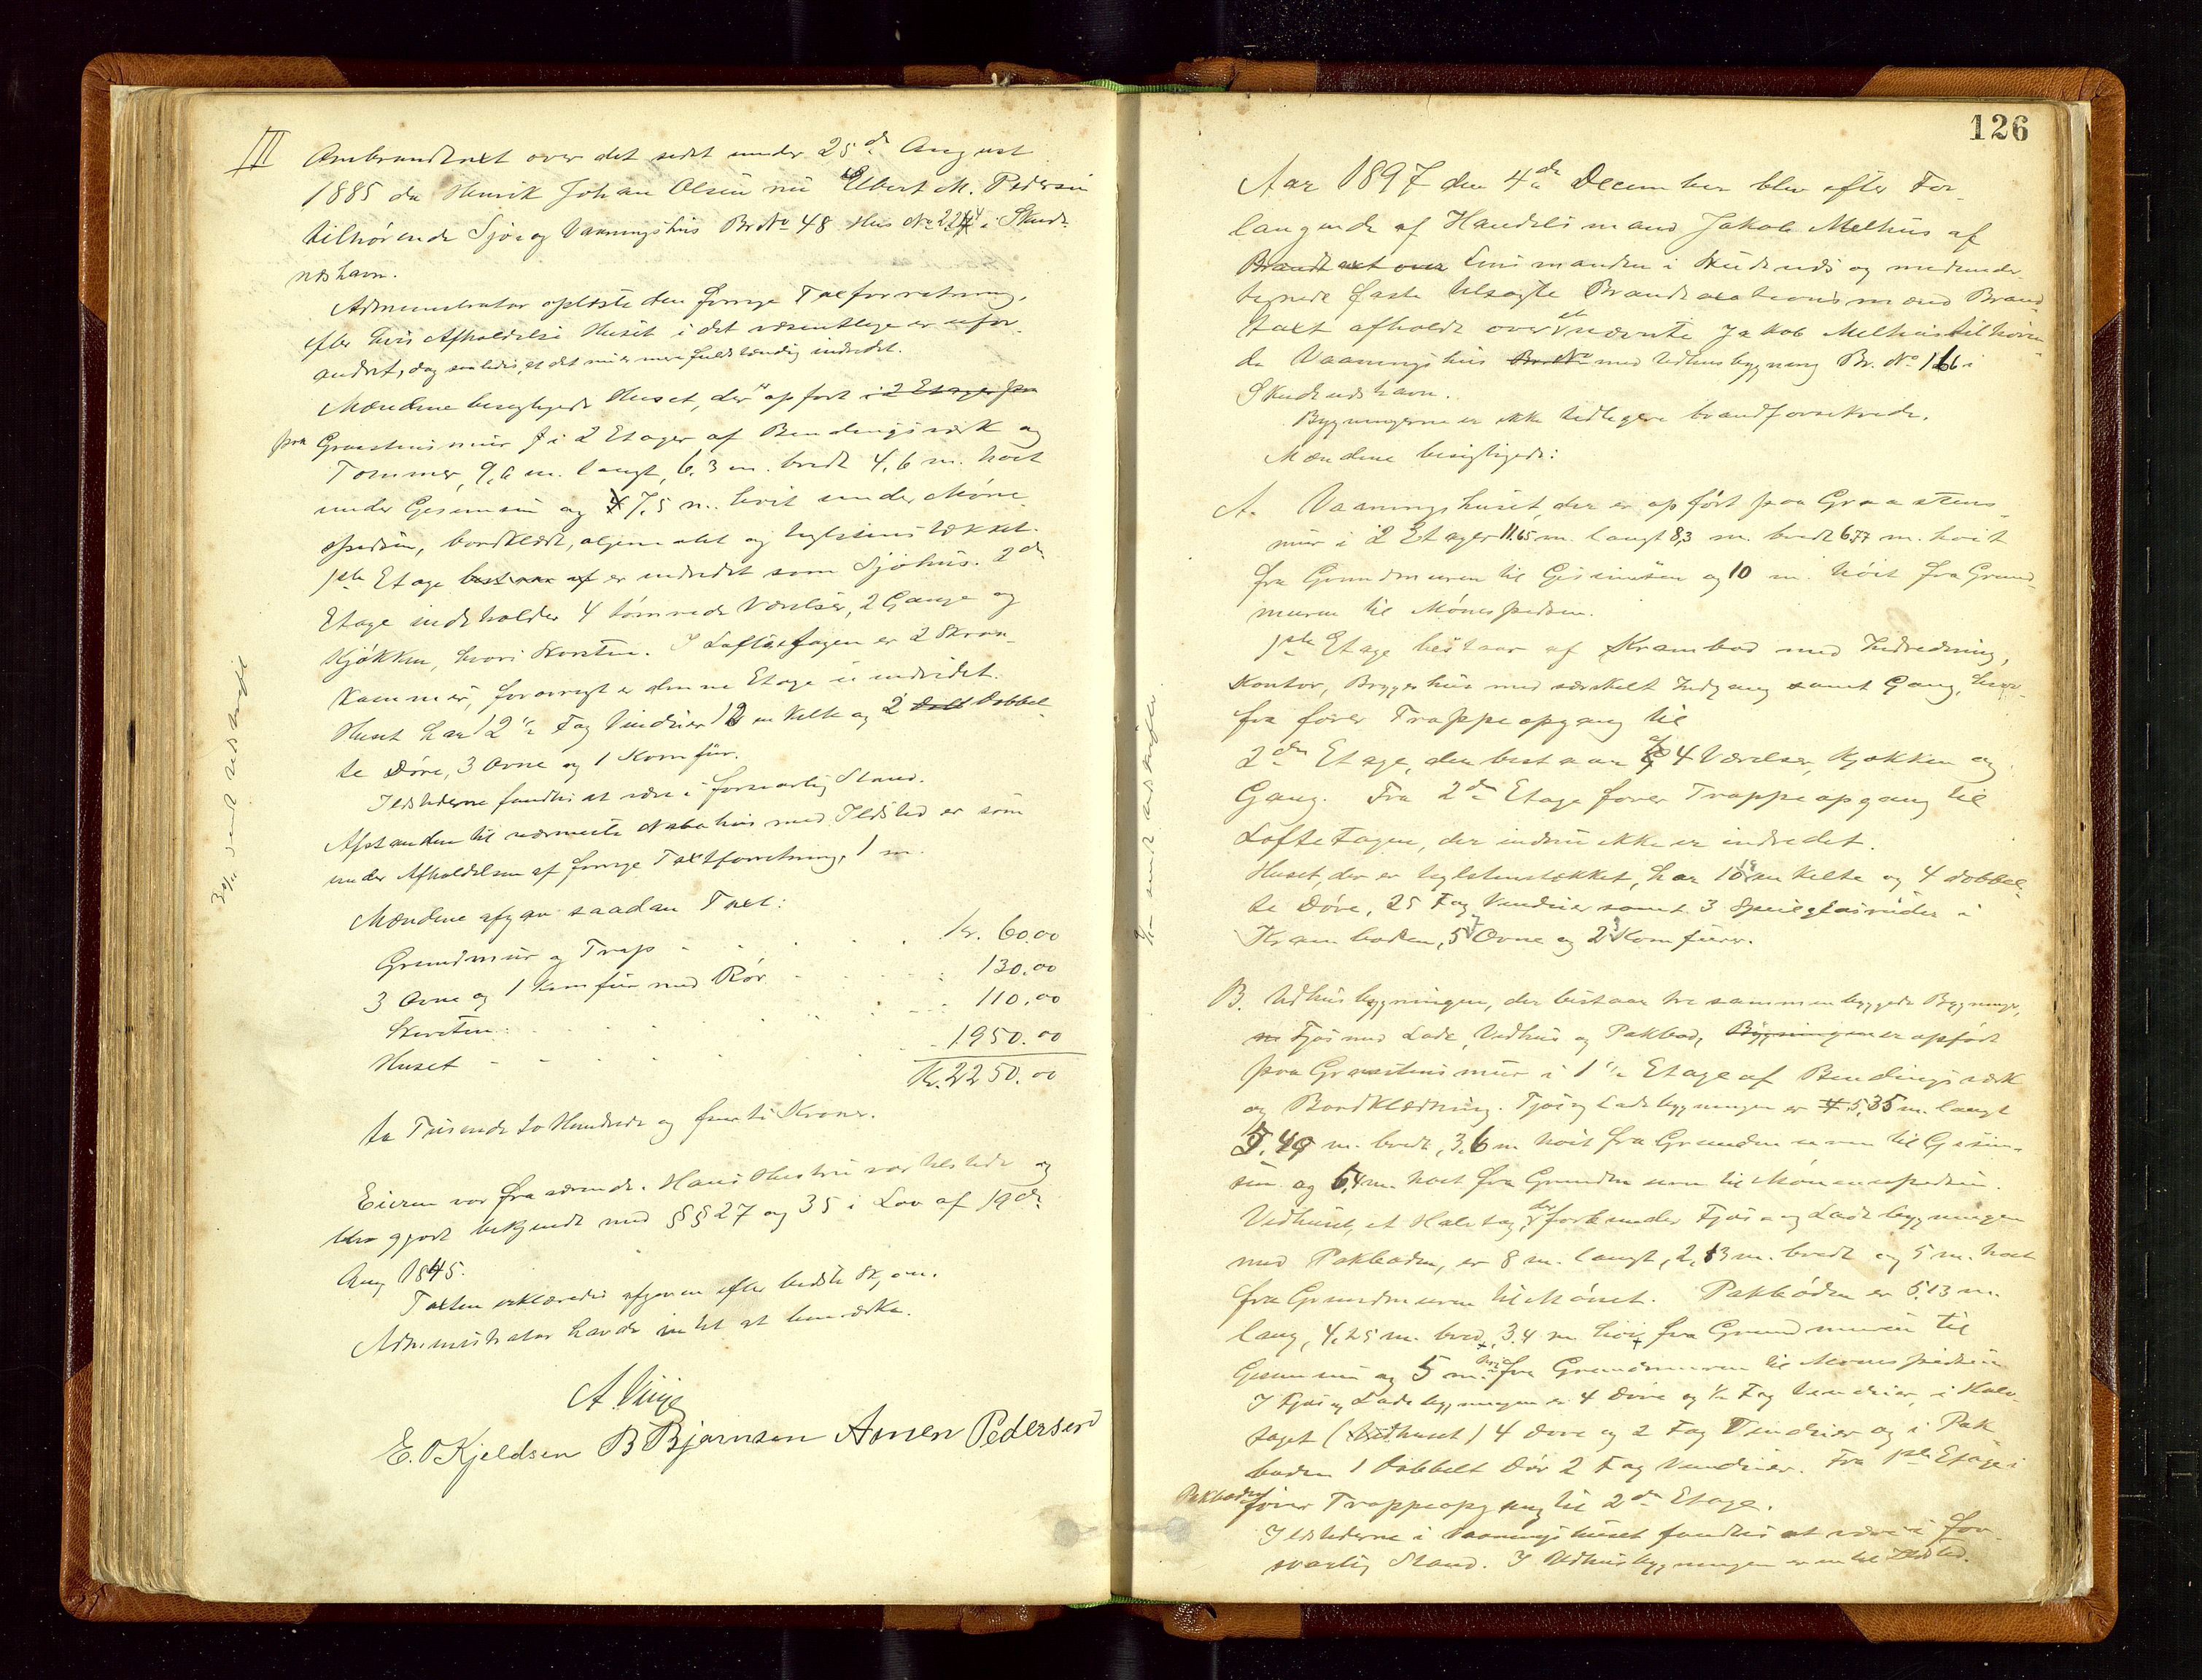 III Ombrandtaxt over det sidst under 25de August
1885 da Henrik Johan Olsen nu Elbert M. Pedersen
tilhørende Sjø og Vaaningshus Br No 48 Hus No 224 i Skude-
neshavn.
Administrator oplæste den forrige Taxforretning,
efter hvis Afholdelse Huset i det væsentlige er ufor-
andret, dog saaledes, at det nu er mere fuldstændig indredet.
Mændene besigtigede Huset, der er opført i 2 Etager paa
paa Graastensmur i 2 Etager af Bindingsværk og
Tømmer, 9,6 m. langt, 6,3 m. bredt 4,6 m. høit
under Gesimsen og 7,5 m. høit under Møne-
spidsen, bordklædt, oljemalet og teglstenstækket.
1ste Etage bestaar af er indredet som Sjøhus. 2den
Etage indeholder 4 tømrede Værelser, 2 Gange og
Kjøkken, hvori Skorsten. I Loftsetagen er 2 Skraa-
kammer, forøvrigt er denne Etage ei indredet.
Huset har 12 ½ Fag Vinduer 12 enkelte og 2 Dobbel-
te Døre, 3 Ovne og 1 Komfür.
Ildstederne fandtes at være i forsvarlig Stand.
Afstanden til nærmeste Nabohus med Ildsted er som
under Afholdelsen af forrige Taxtforretning, 1 m.
Mændene afgav saadan Taxt:
Grundmur og Trap - . . . . Kr. 60.00
3 Ovne og 1 Komfür med Rör - . . 130.00
Skorsten . . . . . 110.00
Huset - - - . . . 1950.00
Kr. 2250.00
to Tusende to Hundrede og femti Kroner.
Eieren var fraværende. Hans Hustru var tilstede og
blev gjort bekjendt med §§ 27 og 35 i Lov af 19de
Aug 1845.
Taxten erklæredes afgiven efter bedste Skjøn.
Administrator havde intet at bemærke.
A. Vinje
E. O Kjeldsen B Bjørnsen Asmen Pedersen
30/11 sendt udskrift
126
Aar 1897 den 4de December blev efter For-
langende af Handelsmand Jakob Melhus af
Brandtaxt over Lensmanden i Skudenes og medunder-
tegnede faste tilsagte Brandtaxationsmænd Brand-
taxt afholdt over nævnte Jakob Melhus tilhøren-
de Vaaningshus Br. No med Udhusbygning Br. No 166 i
Skudeneshavn.
Bygningerne er ikke tidligere brandforsikrede.
Mændene besigtigede:
A. Vaaningshuset, der er opført paa Graastens-
mur i 2 Etager 11,65 m. langt 8,3 m. bredt 6,77 m. høit
fra Grundmuren til Gesimsen og 10 m. høit fra Grund-
muren til Mønespidsen.
1ste Etage bestaar af Krambod med Indredning,
Kontor, Bryggerhus med særskilt Indgang samt Gang, hvor-
fra fører Trappeopgang til
2den Etage, der bestaar af 4 Værelser, Kjøkken og
Gang. Fra 2den Etage fører Trappeopgang til
Loftetagen, der endnu ikke er indredet.
Huset, der er teglstenstækket, har enkelte og 4 dobbel-
te Døre, 25 Fag Vinduer samt 3 Speilglasruder i
Kramboden, 5 Ovne og 2 Komfürer.
B. Udhusbygningen, der bestaar tre sammenbyggede Bygninger,
Fjøs med Lade, Vedhus og Pakbod, Bygningen er opført
paa Graastensmur i 1 ½ Etage af Bindingsværk
og Bordklædning. Fjøs og Ladebygningen er 5,35 m. langt
m. bredt, 3,6 m høit fra Grundmuren til Gesim-
sen og 6,4 m. høit fra Grundmuren til Mønespidsen.
Vedhuset, et Halvtag, der forbinder Fjøs og Ladebygningen
med Pakboden, er 8 m. langt, 2,13 m. bredt og 5 m. høit
fra Grundmuren til Mønet. Pakboden er 5,13 m.
lang, 4,25 m. bred, 3,4 m. høi fra Grundmuren til
Gesimsen og 5 m. høi fra Grundmuren til Mønespidsen
I Fjøs og Ladebygningen er 4 Døre og ½ Fag Vinduer, i Halv-
taget (Vedhuset) 4 Døre og 2 Fag Vinduer og i Pak
boden 1 Dobbelt Dør 2 Fag Vinduer. Fra 1ste Etage i
Pakboden fører Trappeopgang til 2den Etage.
Ildstederne i Vaaningshuset fandtes at være i for-
svarlig Stand. I Udhusbygningen er intet Ildsted.
sendt udskrift